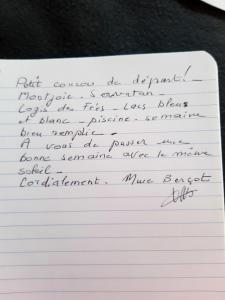 Petit coucou de départ! -
Montjoie. Servutan -
Logis des Fées - Lacs bleus
et blanc - piscine - semaine
bien remplie -
A vous de passer une
bonne semaine avec le même
soleil -
Cordialement. Mme Bergot